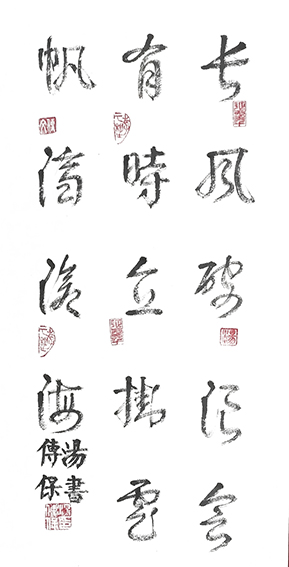 長風破浪會
有時直掛雲
帆濟滄海
湯書
傳保